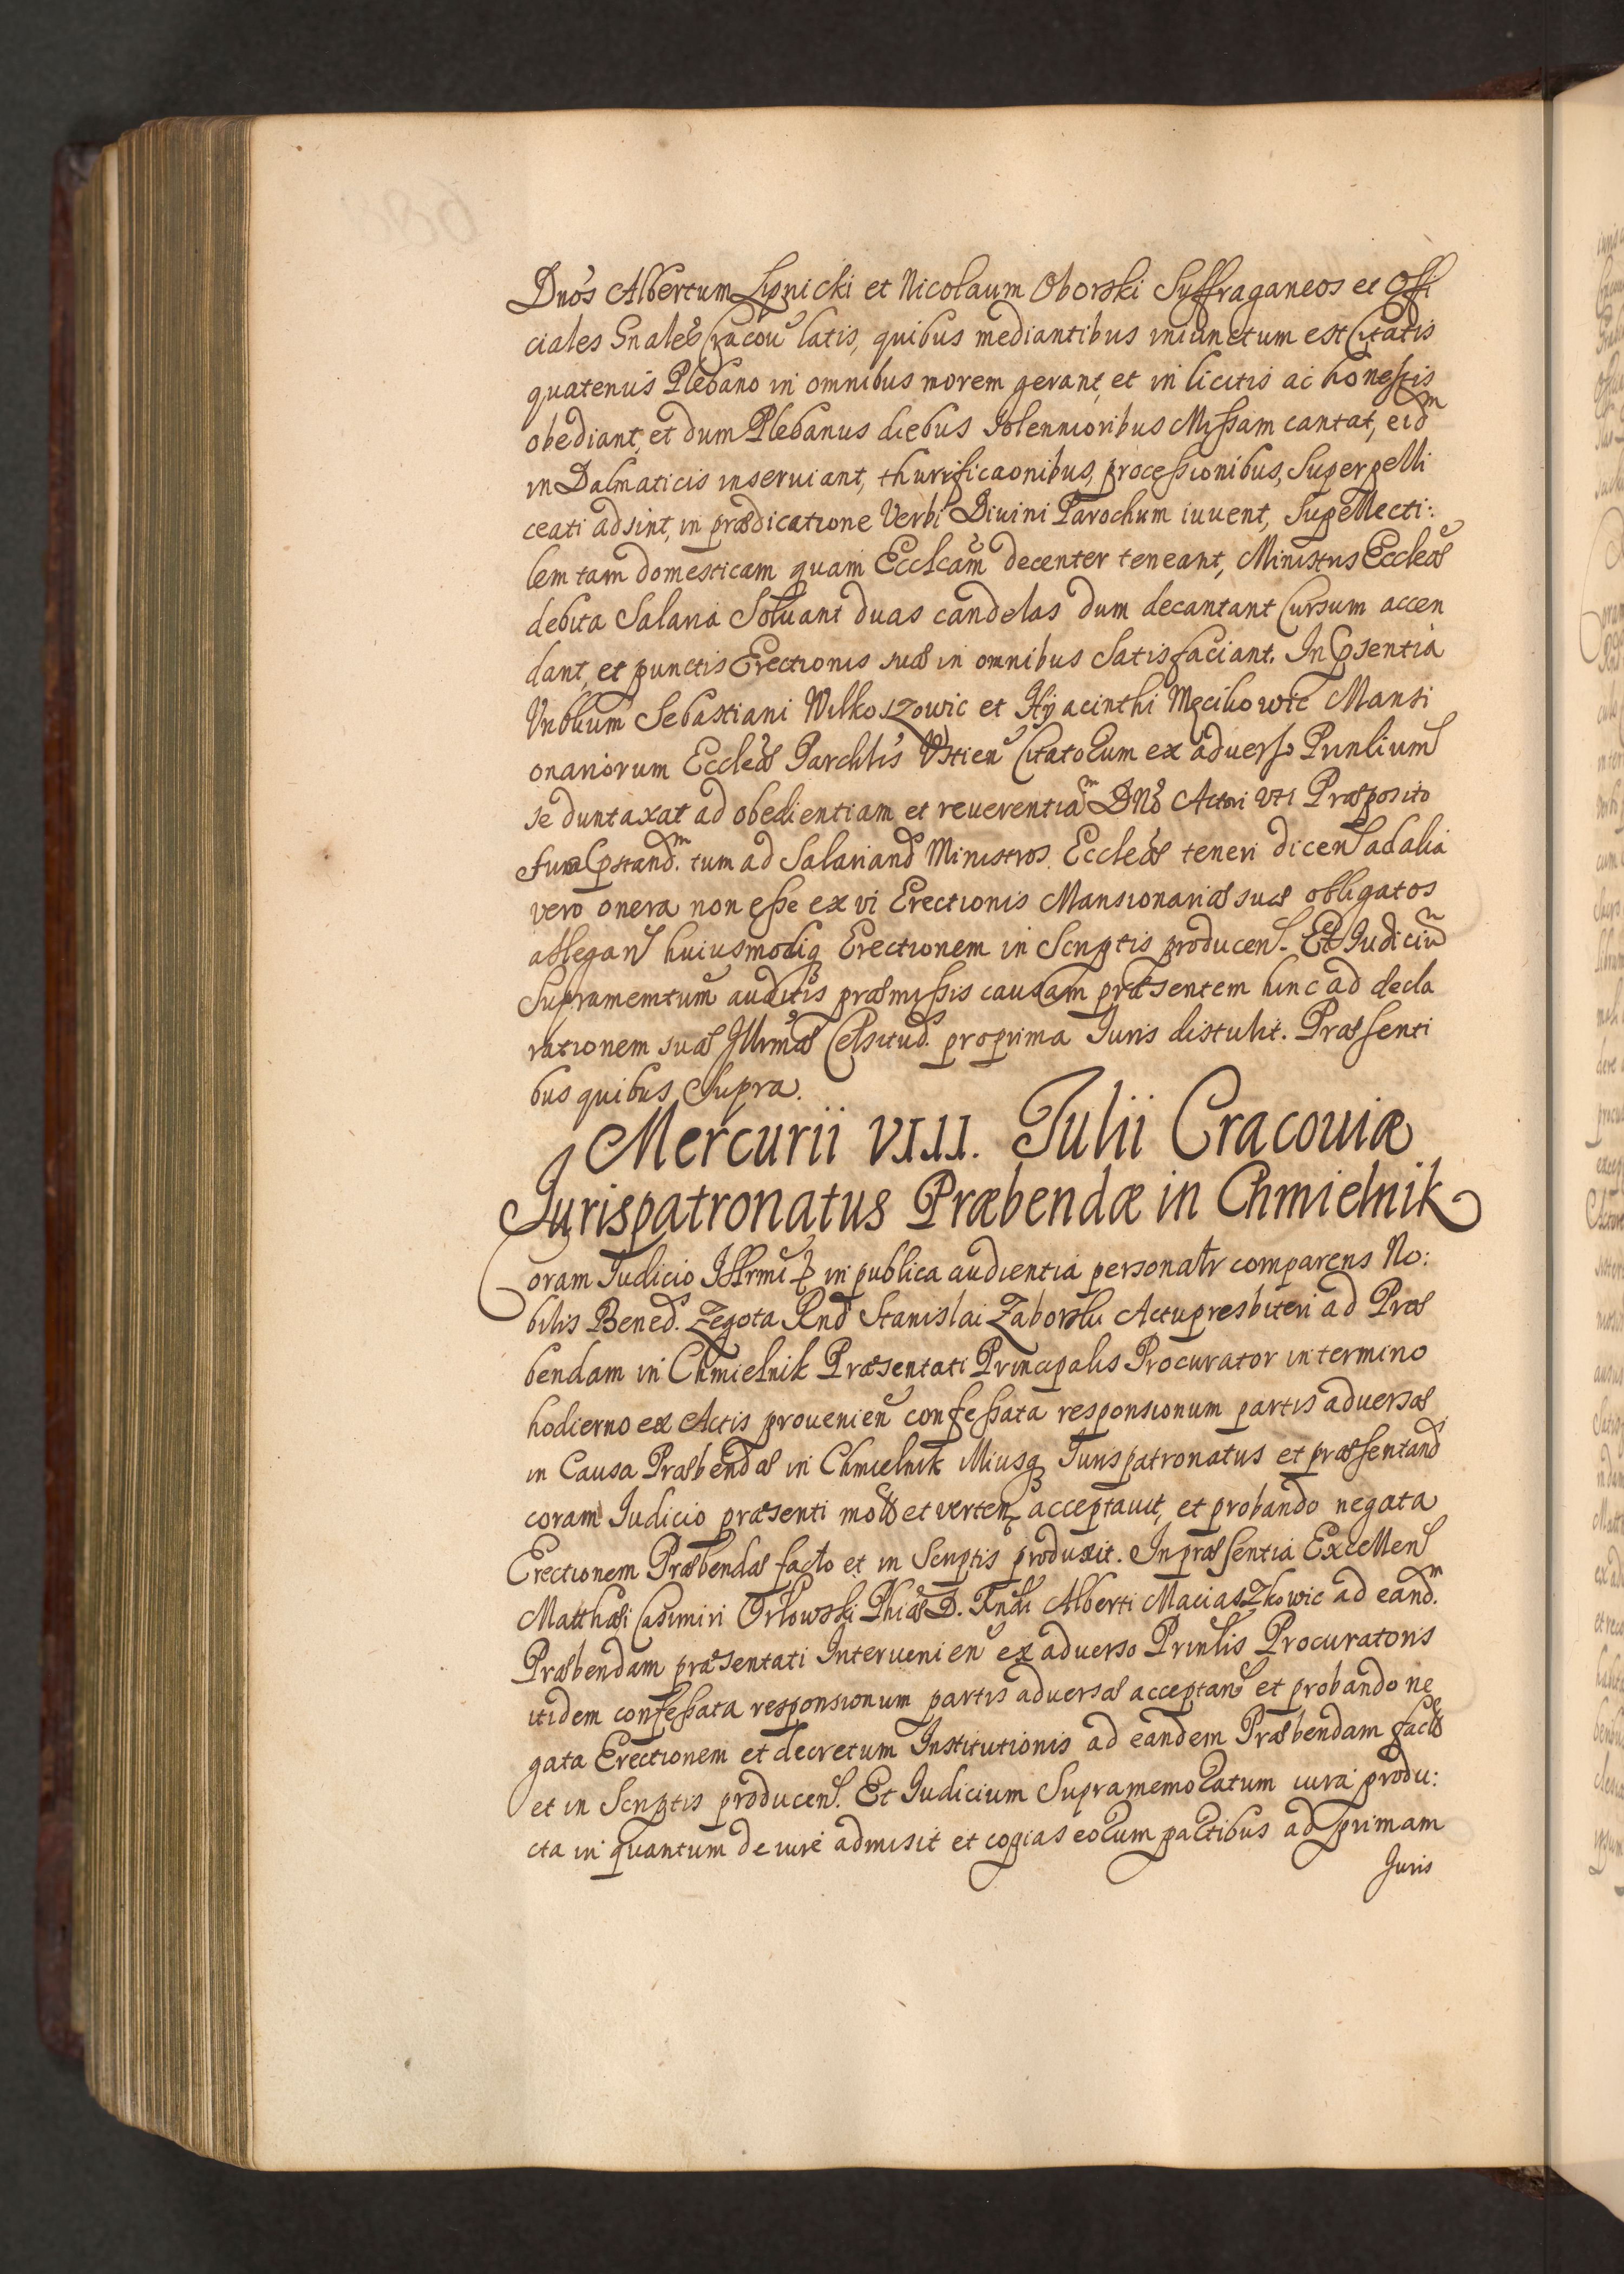 Dnos Albertum Lipnicki et Nicolaum Oborski Suffraganeos et Offi
ciales Gnales Cracou latis, quibus mediantibus iniunctum est Citatis
quatenus Plebano in omnibus morem gerant, et in licitis ac honestis
obediant, et dum Plebanus diebus solennioribus Missam cantat, eidm
in Dalmaticis inseruiant, thurrificaonibus, processionibus, Superpelli
ceati adsint, in prædicatione Verbi Diuini Parochum iuuent, Supellecti:
lem tam domesticam quam Ecclcam decenter teneant, Ministris Eccleæ
debita Salaria Soluant duas candelas dum decantant Cursum accen
dant, et punctis Erectionis suæ in omnibus Satisfaciant. In Psentia
Vnblium Sebastiani Wilkoszowic et Hyacinthi Męcikowic Mansi
onariorum Eccleæ Parchlis Vstien Citatorum ex aduerso Prinlium
se duntaxat ad obedientiam et reuerentiam Dno Actori vti Præposito
suo pstandm. tum ad Salariand Ministros Eccleæ teneri dicen ad alia
vero onera non esse ex vi Erectionis Mansionariæ suæ obligatos
allegan huiusmodiq Erectionem in Scriptis producen. Et Iudicium
Supramemtum auditis præmissis causam præsentem hinc ad decla
rationem suæ Illrmæ Celsitud. pro prima Iuris distulit. Præsenti
bus quibus Supra.
Mercurii VIII. Iulii Cracouiæ
Iurispatronatus Præbendæ in Chmielnik
Coram Iudicio Illrmi P in publica audientia personalr comparens No:
bilis Bened. Zegota Rnd Stanislai Zaborski Actupresbiteri ad Præ
bendam in Chmielnik Præsentati Principalis Procurator in termino
hodierno ex Actis prouenien confessata responsionum partis aduersæ
in Causa Præbendæ in Chmielnik Illiusq Iurispatronatus et præsentand
coram Iudicio præsenti mota et verten acceptauit, et probando negata
Erectionem Præbendæ facto et in Scriptis produxit. In præsentia Excellen
Matthæi Casimiri Orłowski Phiæ D. Rndi Alberti Maciaszkowic ad eandm.
Præbendam præsentati Interuenien ex aduerso Prinlis Procuratoris
itidem confessata responsionum partis aduersæ acceptan et probando ne
gata Erectionem et decretum Institutionis ad eandem Præbendam facto
et in Scriptis producen. Et Iudicium Supramemoratum iura produ:
cta in quantum de iure admisit et copias eorum partibus ad primam
Iuris